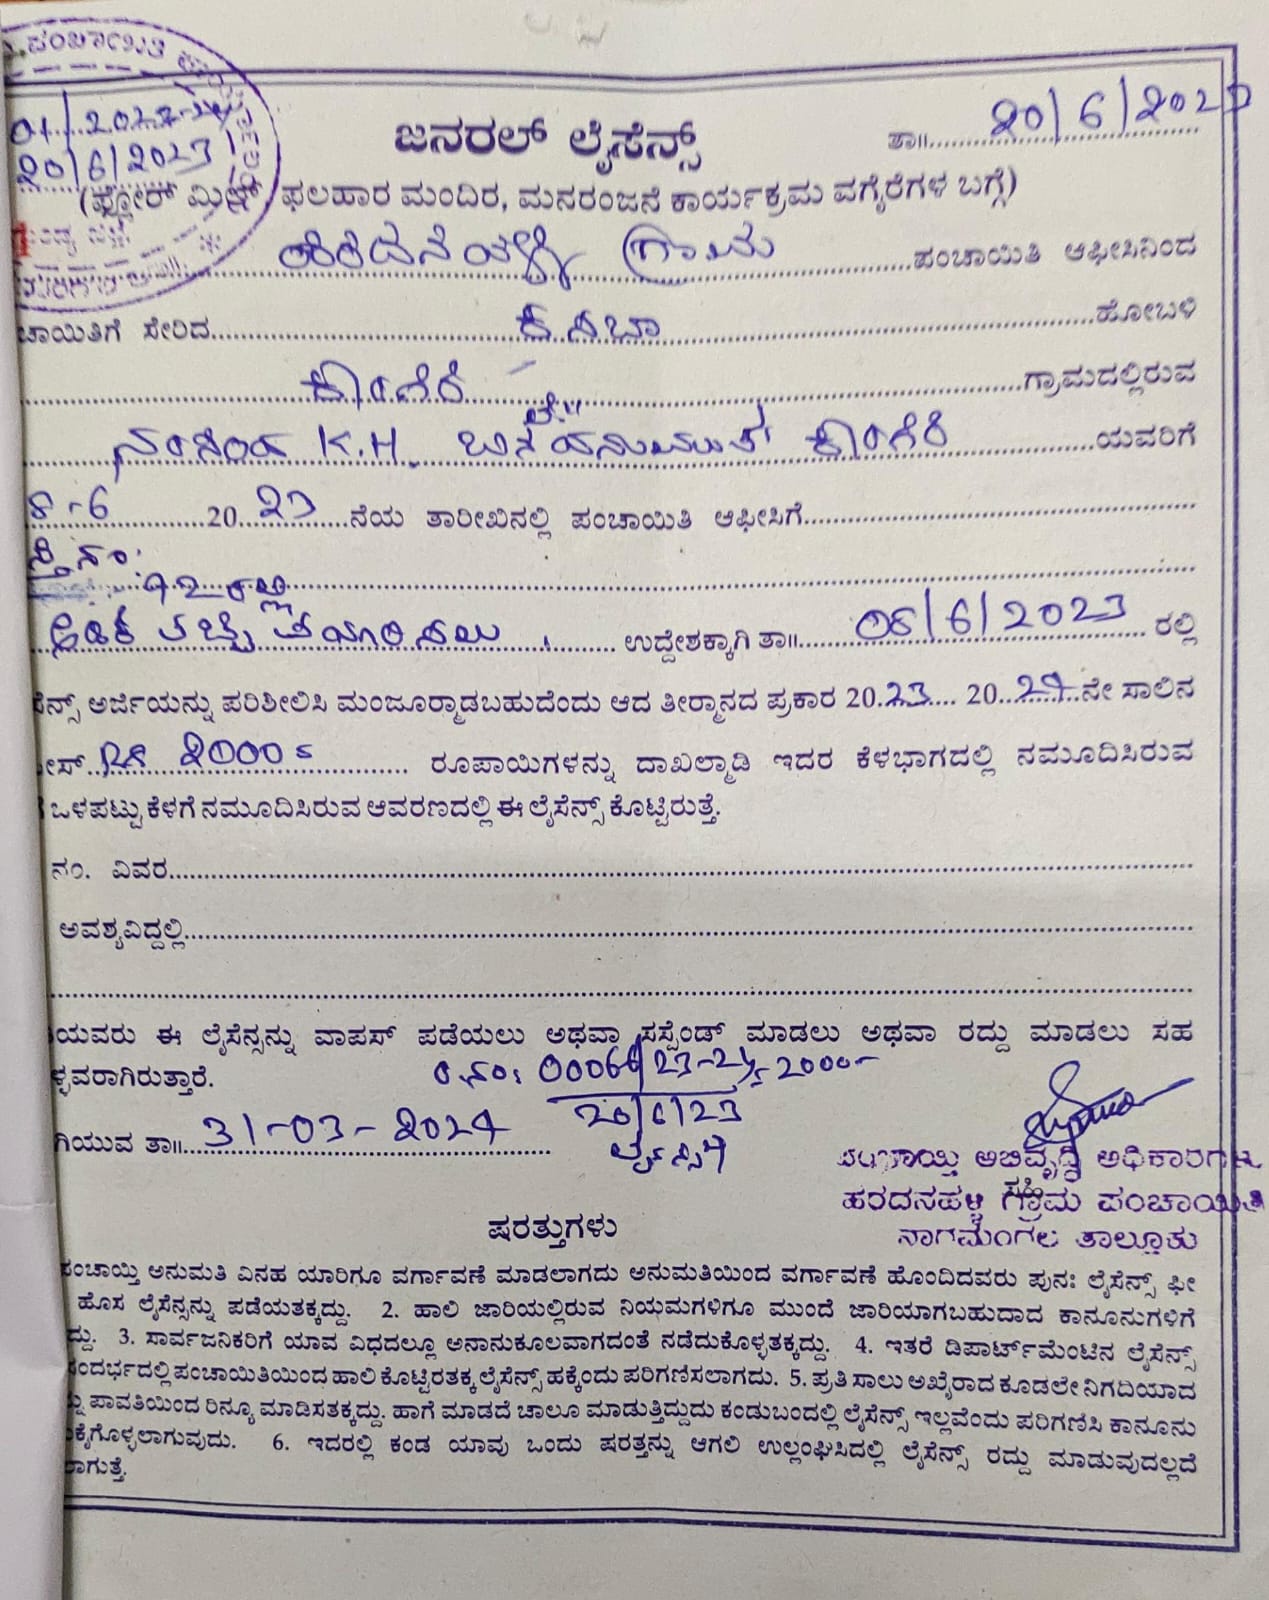 ಪಂಚಾಯಿತಿ
01/2023-24
20/6/2023
ಜನರಲ್ ಲೈಸೆನ್ಸ್
ತಾ॥ 20/6/2023
(ಫ್ಲೋರ್ ಮಿಲ್ ಫಲಹಾರ ಮಂದಿರ, ಮನರಂಜನೆ ಕಾರ್ಯಕ್ರಮ ವಗೈರೆಗಳ ಬಗ್ಗೆ)
ಹರದನಹಳ್ಳಿ ಗ್ರಾಮ ಪಂಚಾಯಿತಿ ಆಫೀಸಿನಿಂದ
ಚಾಯಿತಿಗೆ ಸೇರಿದ ಕಸಬಾ ಹೋಬಳಿ
ಗ್ರಾಮದಲ್ಲಿರುವ
K.H. ಬಿನ್ ಯವರಿಗೆ
8-6 2023 ನೆಯ ತಾರೀಖಿನಲ್ಲಿ ಪಂಚಾಯಿತಿ ಆಫೀಸಿಗೆ
ಸ್ತಿ ನಂ:
92 ರಲ್ಲಿ
ಅಡಿಕೆ ತಟ್ಟೆ ತಯಾರಿಸಲು ಉದ್ದೇಶಕ್ಕಾಗಿ ತಾ॥ 08/6/2023 ರಲ್ಲಿ
ಸೆನ್ಸ್ ಅರ್ಜಿಯನ್ನು ಪರಿಶೀಲಿಸಿ ಮಂಜೂರ್ಮಾಡಬಹುದೆಂದು ಆದ ತೀರ್ಮಾನದ ಪ್ರಕಾರ 2023 2024 ನೇ ಸಾಲಿನ
ೀಸ್ Rs 2000 ರೂಪಾಯಿಗಳನ್ನು ದಾಖಲ್ಮಾಡಿ ಇದರ ಕೆಳಭಾಗದಲ್ಲಿ ನಮೂದಿಸಿರುವ
ಒಳಪಟ್ಟು ಕೆಳಗೆ ನಮೂದಿಸಿರುವ ಆವರಣದಲ್ಲಿ ಈ ಲೈಸೆನ್ಸ್ ಕೊಟ್ಟಿರುತ್ತೆ.
ನಂ. ವಿವರ
ಅವಶ್ಯವಿದ್ದಲ್ಲಿ
ಯವರು ಈ ಲೈಸೆನ್ಸನ್ನು ವಾಪಸ್ ಪಡೆಯಲು ಅಥವಾ ಸಸ್ಪೆಂಡ್ ಮಾಡಲು ಅಥವಾ ರದ್ದು ಮಾಡಲು ಸಹ
ಳ್ಳವರಾಗಿರುತ್ತಾರೆ. ರ.ನಂ: 00066/23-24 2000
20/6/23
ಗಿಯುವ ತಾ॥ 31-03-2024
ಪಂಚಾಯ್ತಿ ಅಭಿವೃದ್ಧಿ ಅಧಿಕಾರಿಗಳು
ಸಹಿ
ಹರದನಹಳ್ಳಿ ಗ್ರಾಮ ಪಂಚಾಯಿತಿ
ನಾಗಮಂಗಲ ತಾಲ್ಲೂಕು
ಷರತ್ತುಗಳು
ಪಂಚಾಯ್ತಿ ಅನುಮತಿ ವಿನಹ ಯಾರಿಗೂ ವರ್ಗಾವಣೆ ಮಾಡಲಾಗದು ಅನುಮತಿಯಿಂದ ವರ್ಗಾವಣೆ ಹೊಂದಿದವರು ಪುನಃ ಲೈಸೆನ್ಸ್ ಫೀ
ಹೊಸ ಲೈಸೆನ್ಸನ್ನು ಪಡೆಯತಕ್ಕದ್ದು. 2. ಹಾಲಿ ಜಾರಿಯಲ್ಲಿರುವ ನಿಯಮಗಳಿಗೂ ಮುಂದೆ ಜಾರಿಯಾಗಬಹುದಾದ ಕಾನೂನುಗಳಿಗೆ
ದ್ದು. 3. ಸಾರ್ವಜನಿಕರಿಗೆ ಯಾವ ವಿಧದಲ್ಲೂ ಅನಾನುಕೂಲವಾಗದಂತೆ ನಡೆದುಕೊಳ್ಳತಕ್ಕದ್ದು. 4. ಇತರೆ ಡಿಪಾರ್ಟ್‌ಮೆಂಟಿನ ಲೈಸೆನ್ಸ್
ಸಂದರ್ಭದಲ್ಲಿ ಪಂಚಾಯಿತಿಯಿಂದ ಹಾಲಿ ಕೊಟ್ಟಿರತಕ್ಕ ಲೈಸೆನ್ಸ್ ಹಕ್ಕೆಂದು ಪರಿಗಣಿಸಲಾಗದು. 5. ಪ್ರತಿ ಸಾಲು ಅಖೈರಾದ ಕೂಡಲೇ ನಿಗದಿಯಾದ
ನ್ನು ಪಾವತಿಯಿಂದ ರಿನ್ಯೂ ಮಾಡಿಸತಕ್ಕದ್ದು. ಹಾಗೆ ಮಾಡದೆ ಚಾಲೂ ಮಾಡುತ್ತಿದ್ದುದು ಕಂಡುಬಂದಲ್ಲಿ ಲೈಸೆನ್ಸ್ ಇಲ್ಲವೆಂದು ಪರಿಗಣಿಸಿ ಕಾನೂನು
ಕೈಗೊಳ್ಳಲಾಗುವುದು. 6. ಇದರಲ್ಲಿ ಕಂಡ ಯಾವು ಒಂದು ಷರತ್ತನ್ನು ಆಗಲಿ ಉಲ್ಲಂಘಿಸಿದಲ್ಲಿ ಲೈಸೆನ್ಸ್ ರದ್ದು ಮಾಡುವುದಲ್ಲದೆ
ರಾಗುತ್ತೆ.